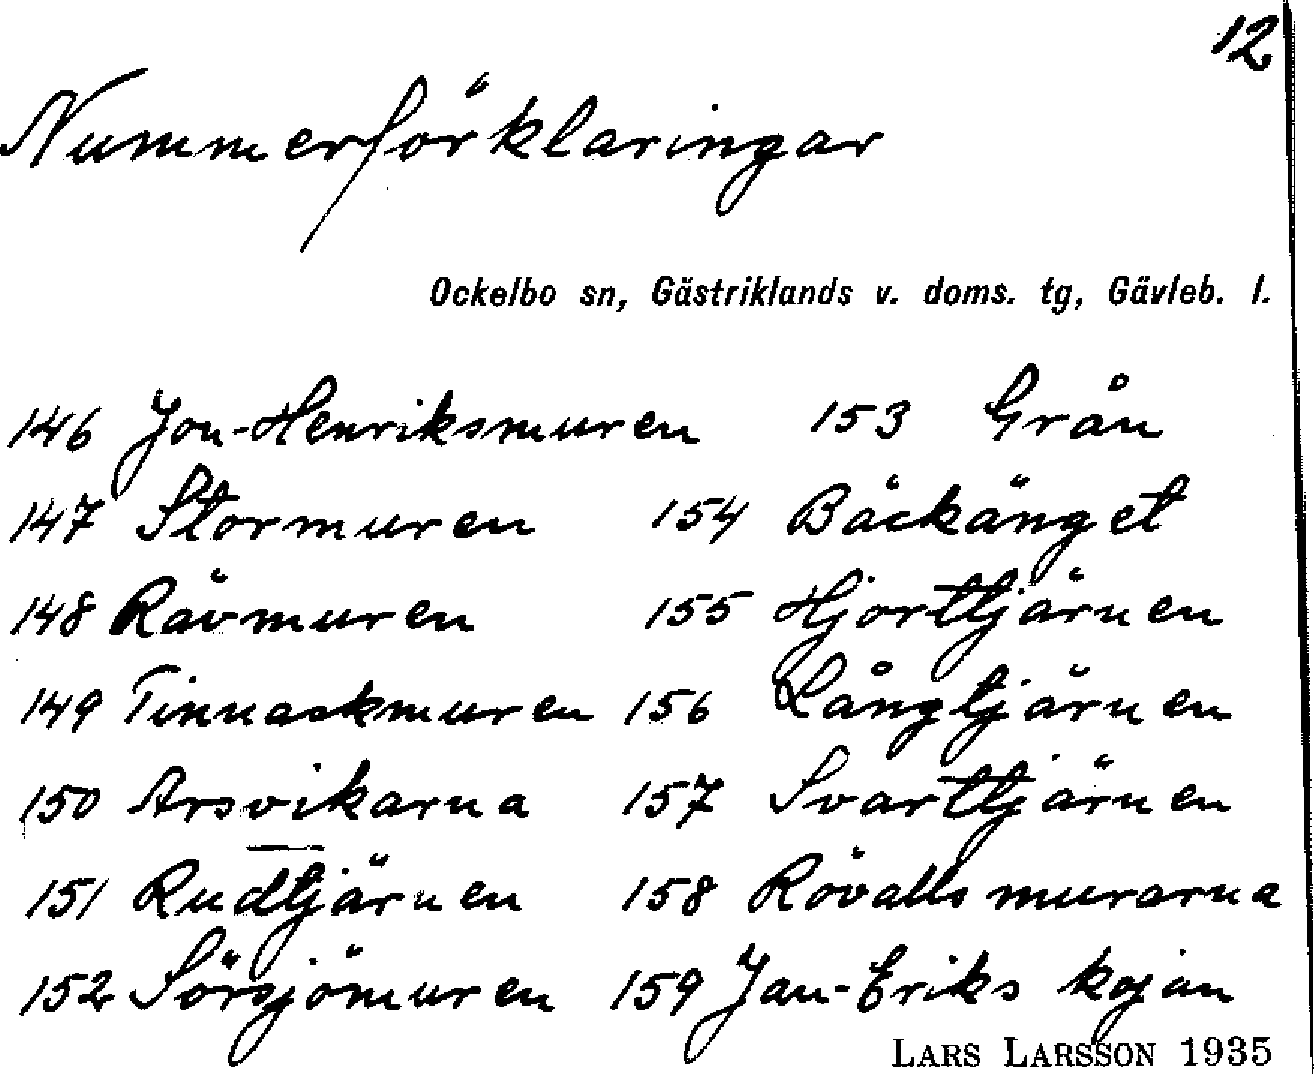 12
Nummerförklaringar
Ockelbo sn, Gästriklands v. doms. tg, Gävleb. l.
146 Jon-Henriksmuren 153 Grån
147 Stormuren 154 Bäckänget
148 Rävmuren 155 Hjorttjärnen
149 Tinnaskmuren 156 Långtjärnen
150 Arsvikarna 157 Svarttjärnen
151 Rudtjärnen 158 Rövallsmurarna
152 Sörsjömuren 159 Jan-Eriks kojan
LARS LARSSON 1935